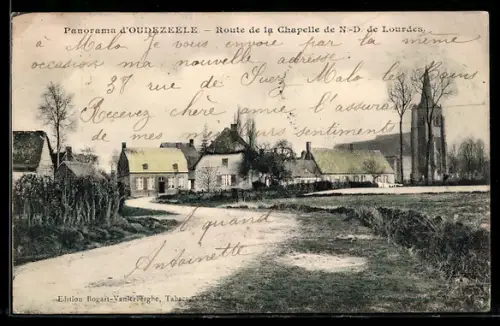 Panorama d'OUDEZEELE. - Route de la Chapelle de N-D. de Lourdes
à Malo Je vous envoie par la même
occasion ma nouvelle adresse.
38 rue de Suez Malo les Bains
Recevez chère amie l'assura
de mes sentiments
à quand
Antoinette
Edition Bogart-Vanderberghe, Tabacs